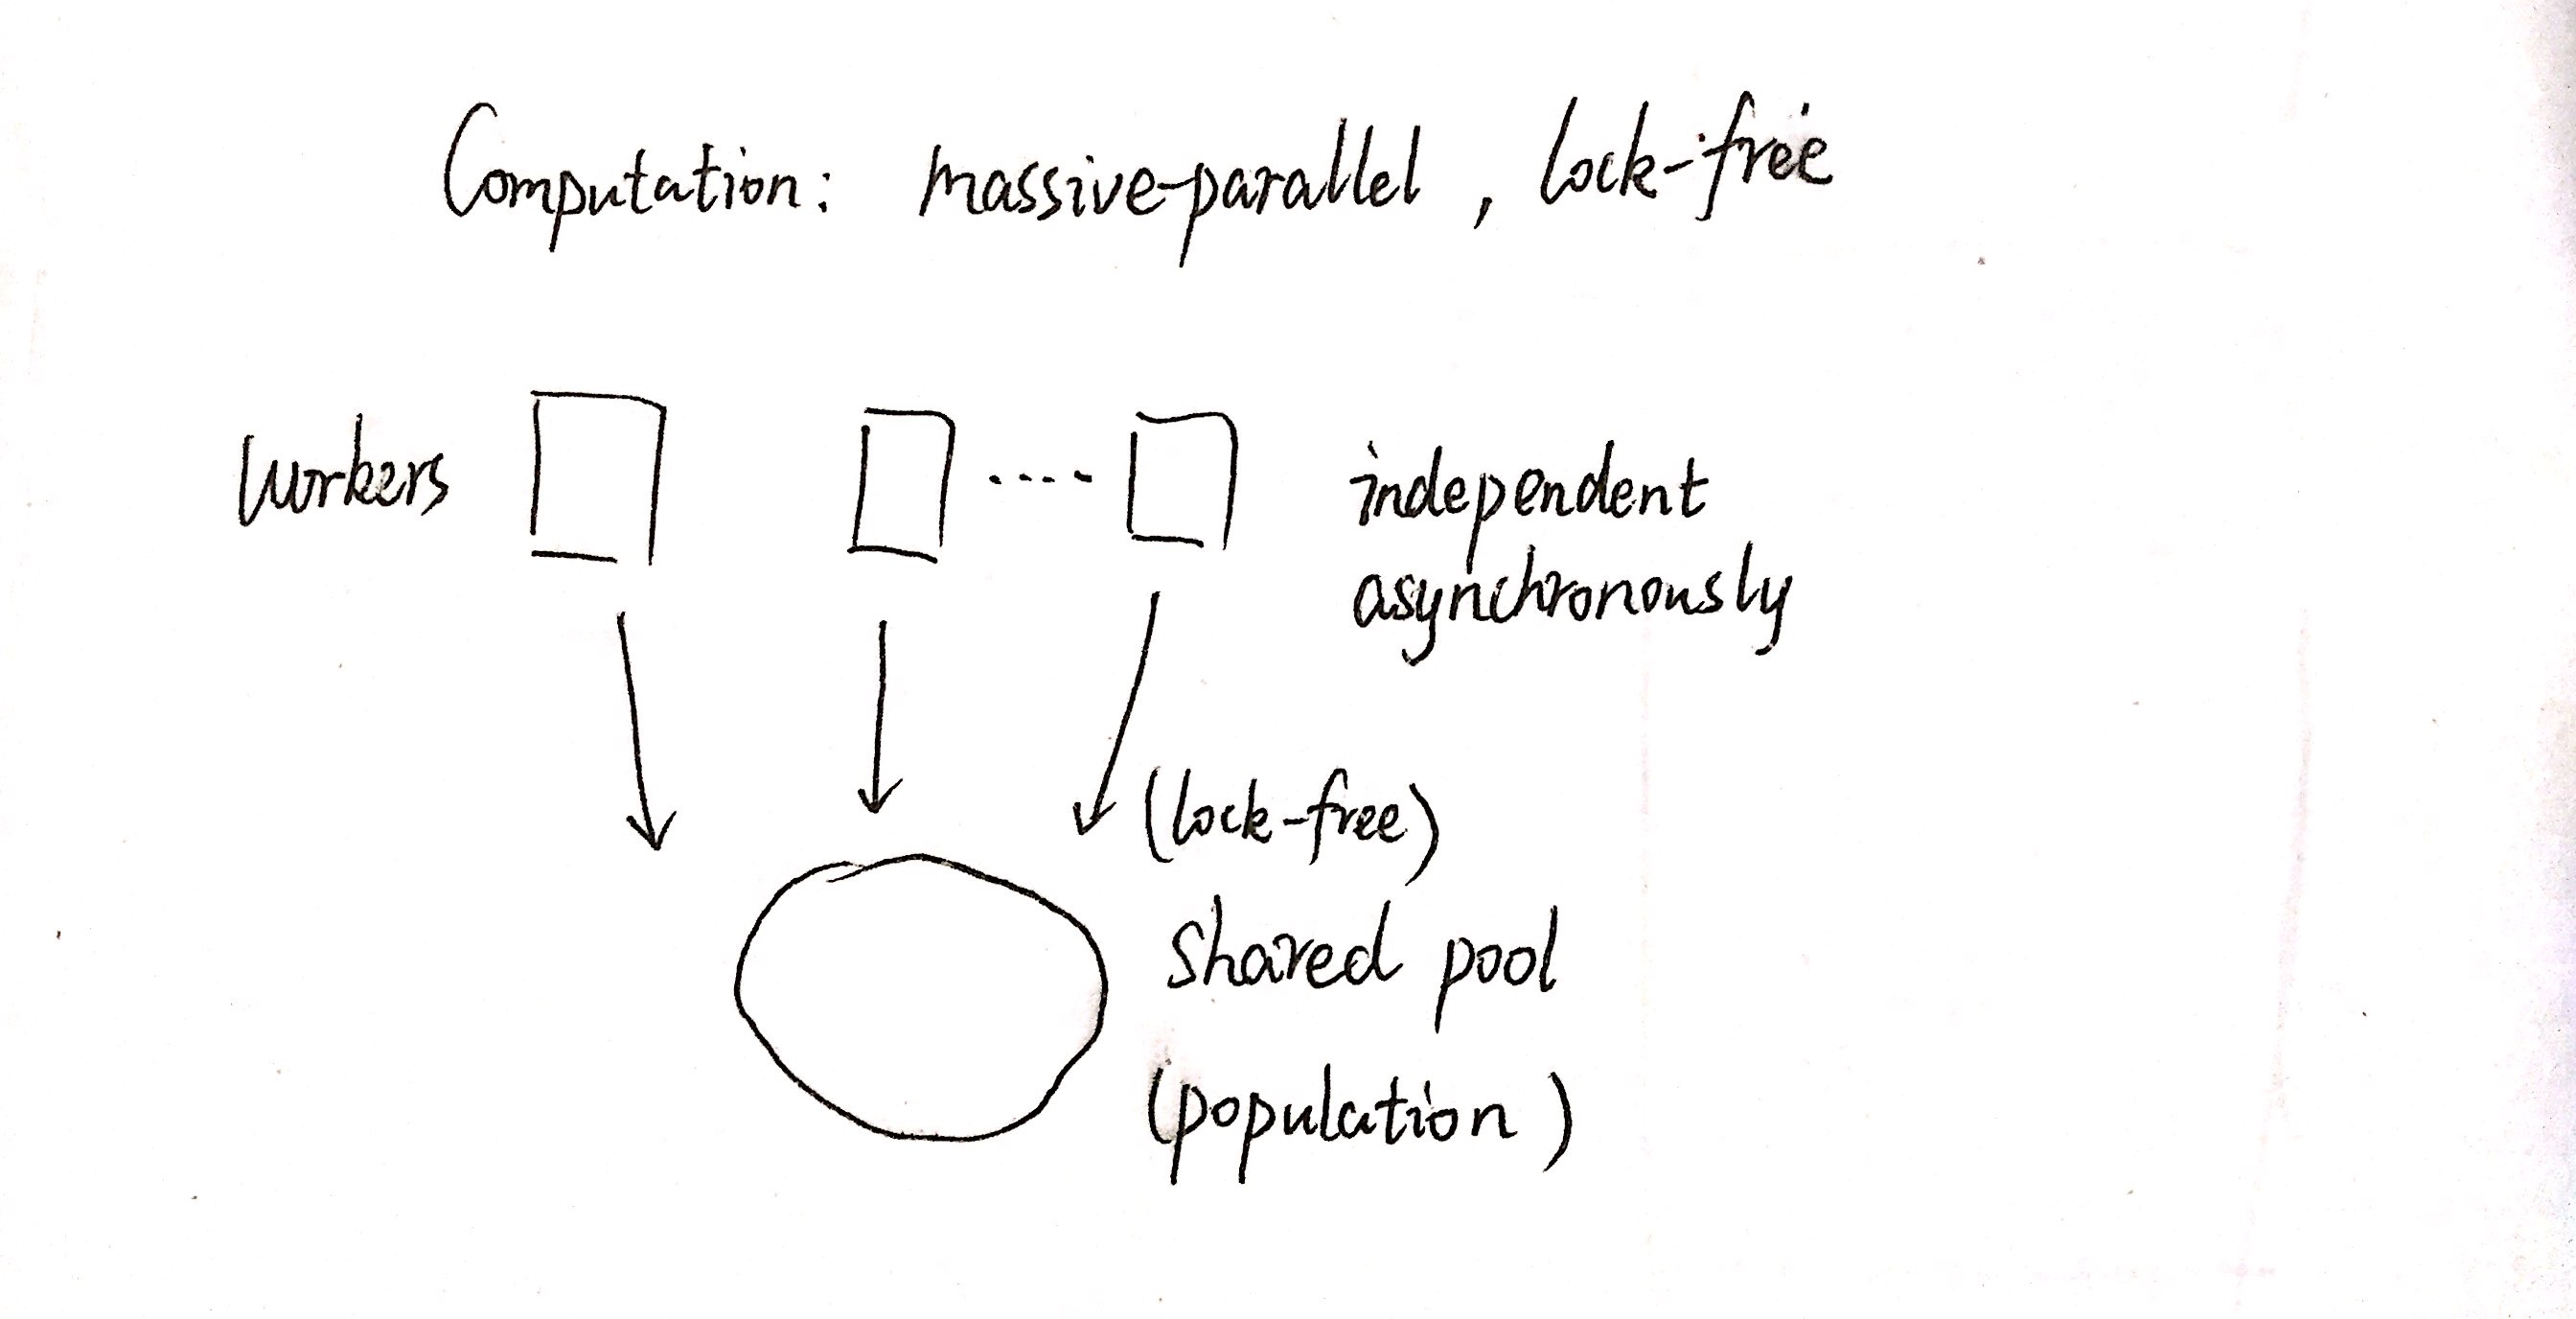 Computation: massive-parallel, lock-free
workers
independent
asynchronously
(lock-free)
shared pool
(population)